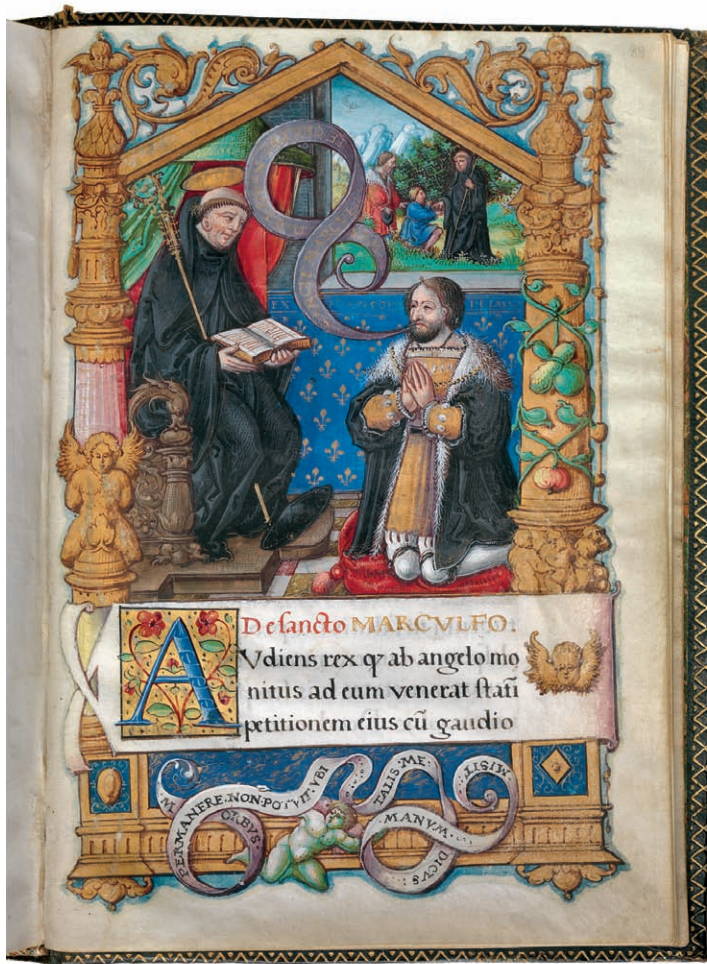 De sancto MARCVLFO.
AVdiens rex qꝫ ab angelo mo
nitus ad eum venerat stati
petitionem eius cū gaudio
PERMANERE·NON·POTVIT·VBI
TALIS·ME·
MISIT·
M
ORBVS·
MANVM·
DICVS: